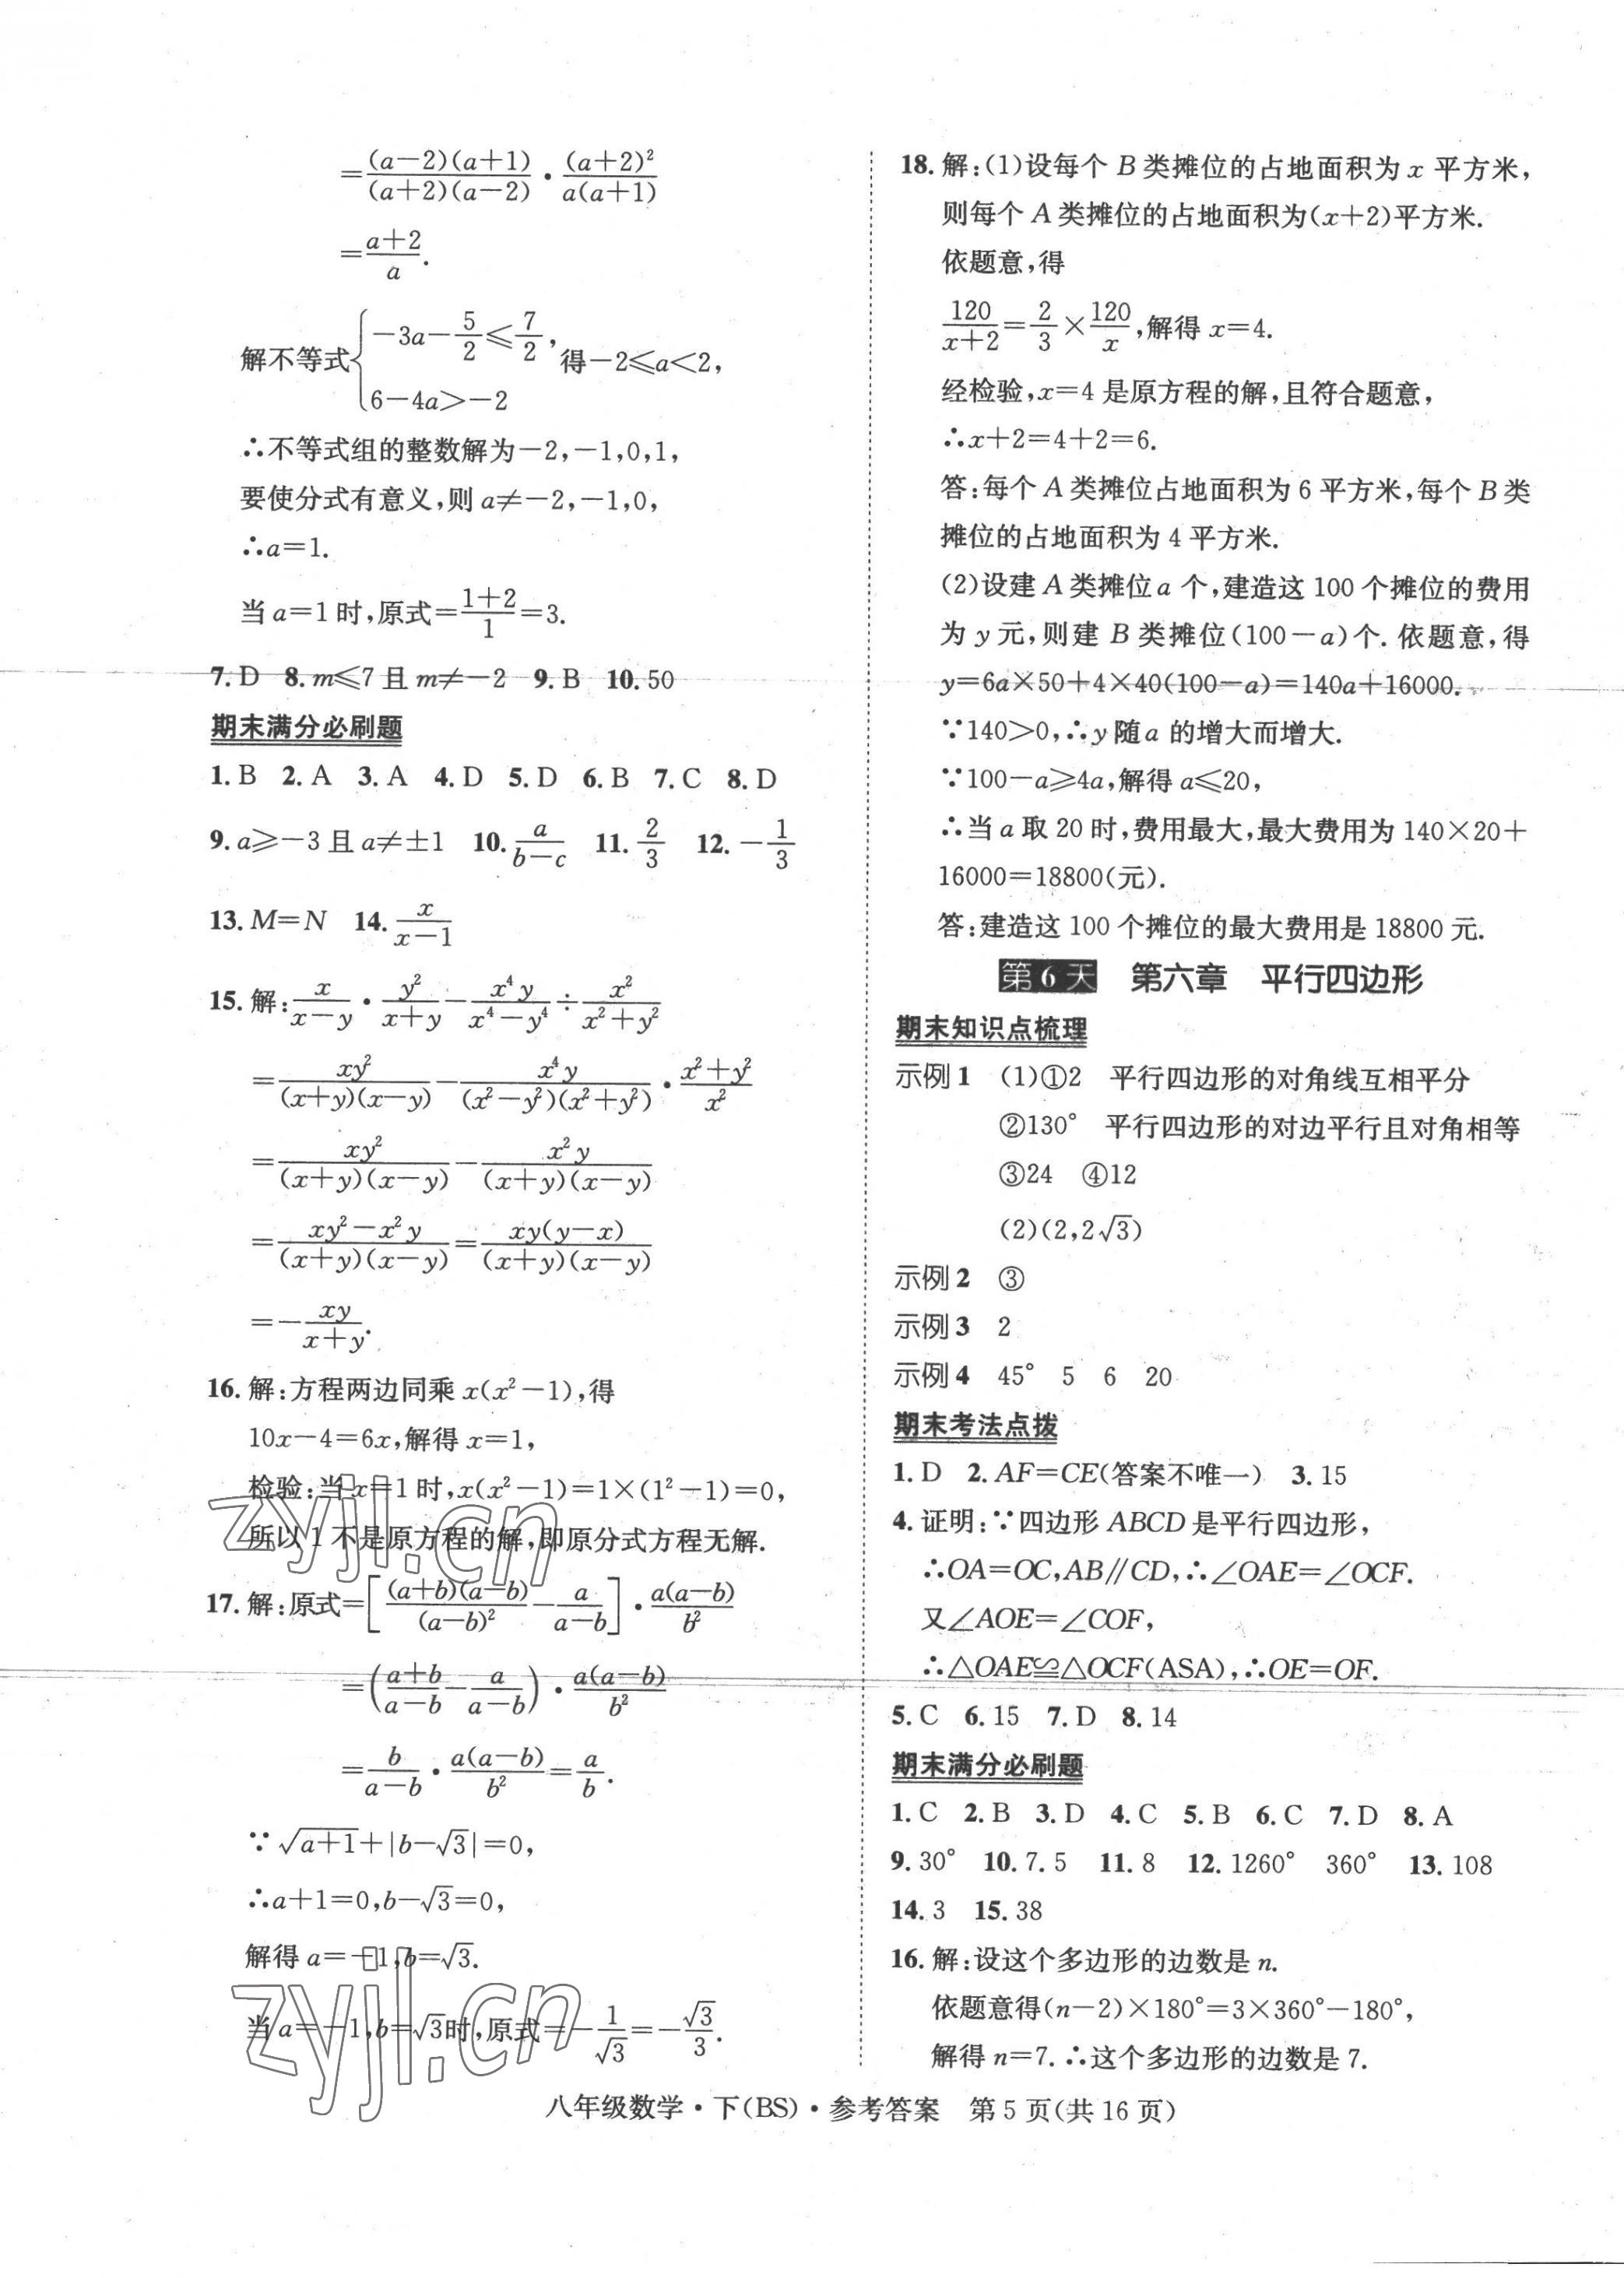 =\frac{(a-2)(a+1)}{(a+2)(a-2)}·\frac{(a+2)²}{a(a+1)}
=\frac{a+2}{a}.
解不等式{-3a-\frac{5}{2}≤\frac{7}{2}, 6-4a>-2 得-2≤a<2,
∴不等式组的整数解为-2,-1,0,1,
要使分式有意义,则a≠-2,-1,0,
∴a=1.
当a=1时,原式=\frac{1+2}{1}=3.
7.D 8.m≤7且m≠-2 9.B 10.50
期末满分必刷题
1.B 2.A 3.A 4.D 5.D 6.B 7.C 8.D
9.a≥-3且a≠±1 10.\frac{a}{b-c} 11.\frac{2}{3} 12.-\frac{1}{3}
13.M=N 14.\frac{x}{x-1}
15.解:\frac{x}{x-y}·\frac{y²}{x+y}-\frac{x⁴y}{x⁴-y⁴}÷\frac{x²}{x²+y²}
=\frac{xy²}{(x+y)(x-y)}-\frac{x⁴y}{(x²-y²)(x²+y²)}·\frac{x²+y²}{x²}
=\frac{xy²}{(x+y)(x-y)}-\frac{x²y}{(x+y)(x-y)}
=\frac{xy²-x²y}{(x+y)(x-y)}=\frac{xy(y-x)}{(x+y)(x-y)}
=-\frac{xy}{x+y}.
16.解:方程两边同乘x(x²-1),得
10x-4=6x,解得x=1,
检验:当x=1时,x(x²-1)=1×(1²-1)=0,
所以1不是原方程的解,即原分式方程无解.
17.解:原式=[\frac{(a+b)(a-b)}{(a-b)²}-\frac{a}{a-b}]·\frac{a(a-b)}{b²}
=(\frac{a+b}{a-b}-\frac{a}{a-b})·\frac{a(a-b)}{b²}
=\frac{b}{a-b}·\frac{a(a-b)}{b²}=\frac{a}{b}.
∵√(a+1)+|b-√3|=0,
∴a+1=0,b-√3=0,
解得a=-1,b=√3.
当a=-1,b=√3时,原式=-\frac{1}{√3}=-\frac{√3}{3}.
18.解:(1)设每个B类摊位的占地面积为x平方米,
则每个A类摊位的占地面积为(x+2)平方米.
依题意,得
\frac{120}{x+2}=\frac{2}{3}×\frac{120}{x},解得x=4.
经检验,x=4是原方程的解,且符合题意,
∴x+2=4+2=6.
答:每个A类摊位占地面积为6平方米,每个B类
摊位的占地面积为4平方米.
(2)设建A类摊位a个,建造这100个摊位的费用
为y元,则建B类摊位(100-a)个.依题意,得
y=6a×50+4×40(100-a)=140a+16000.
∵140>0,∴y随a的增大而增大.
∵100-a≥4a,解得a≤20,
∴当a取20时,费用最大,最大费用为140×20+
16000=18800(元).
答:建造这100个摊位的最大费用是18800元.
第6天 第六章 平行四边形
期末知识点梳理
示例1 (1)①2 平行四边形的对角线互相平分
②130° 平行四边形的对边平行且对角相等
③24 ④12
(2)(2,2√3)
示例2 ③
示例3 2
示例4 45° 5 6 20
期末考法点拨
1.D 2.AF=CE(答案不唯一) 3.15
4.证明:∵四边形ABCD是平行四边形,
∴OA=OC,AB∥CD,∴∠OAE=∠OCF.
又∠AOE=∠COF,
∴△OAE≌△OCF(ASA),∴OE=OF.
5.C 6.15 7.D 8.14
期末满分必刷题
1.C 2.B 3.D 4.C 5.B 6.C 7.D 8.A
9.30° 10.7.5 11.8 12.1260° 360° 13.108
14.3 15.38
16.解:设这个多边形的边数是n.
依题意得(n-2)×180°=3×360°-180°,
解得n=7.∴这个多边形的边数是7.
八年级数学·下(BS)·参考答案 第5页(共16页)
zyjl.cn
zyjl.cn